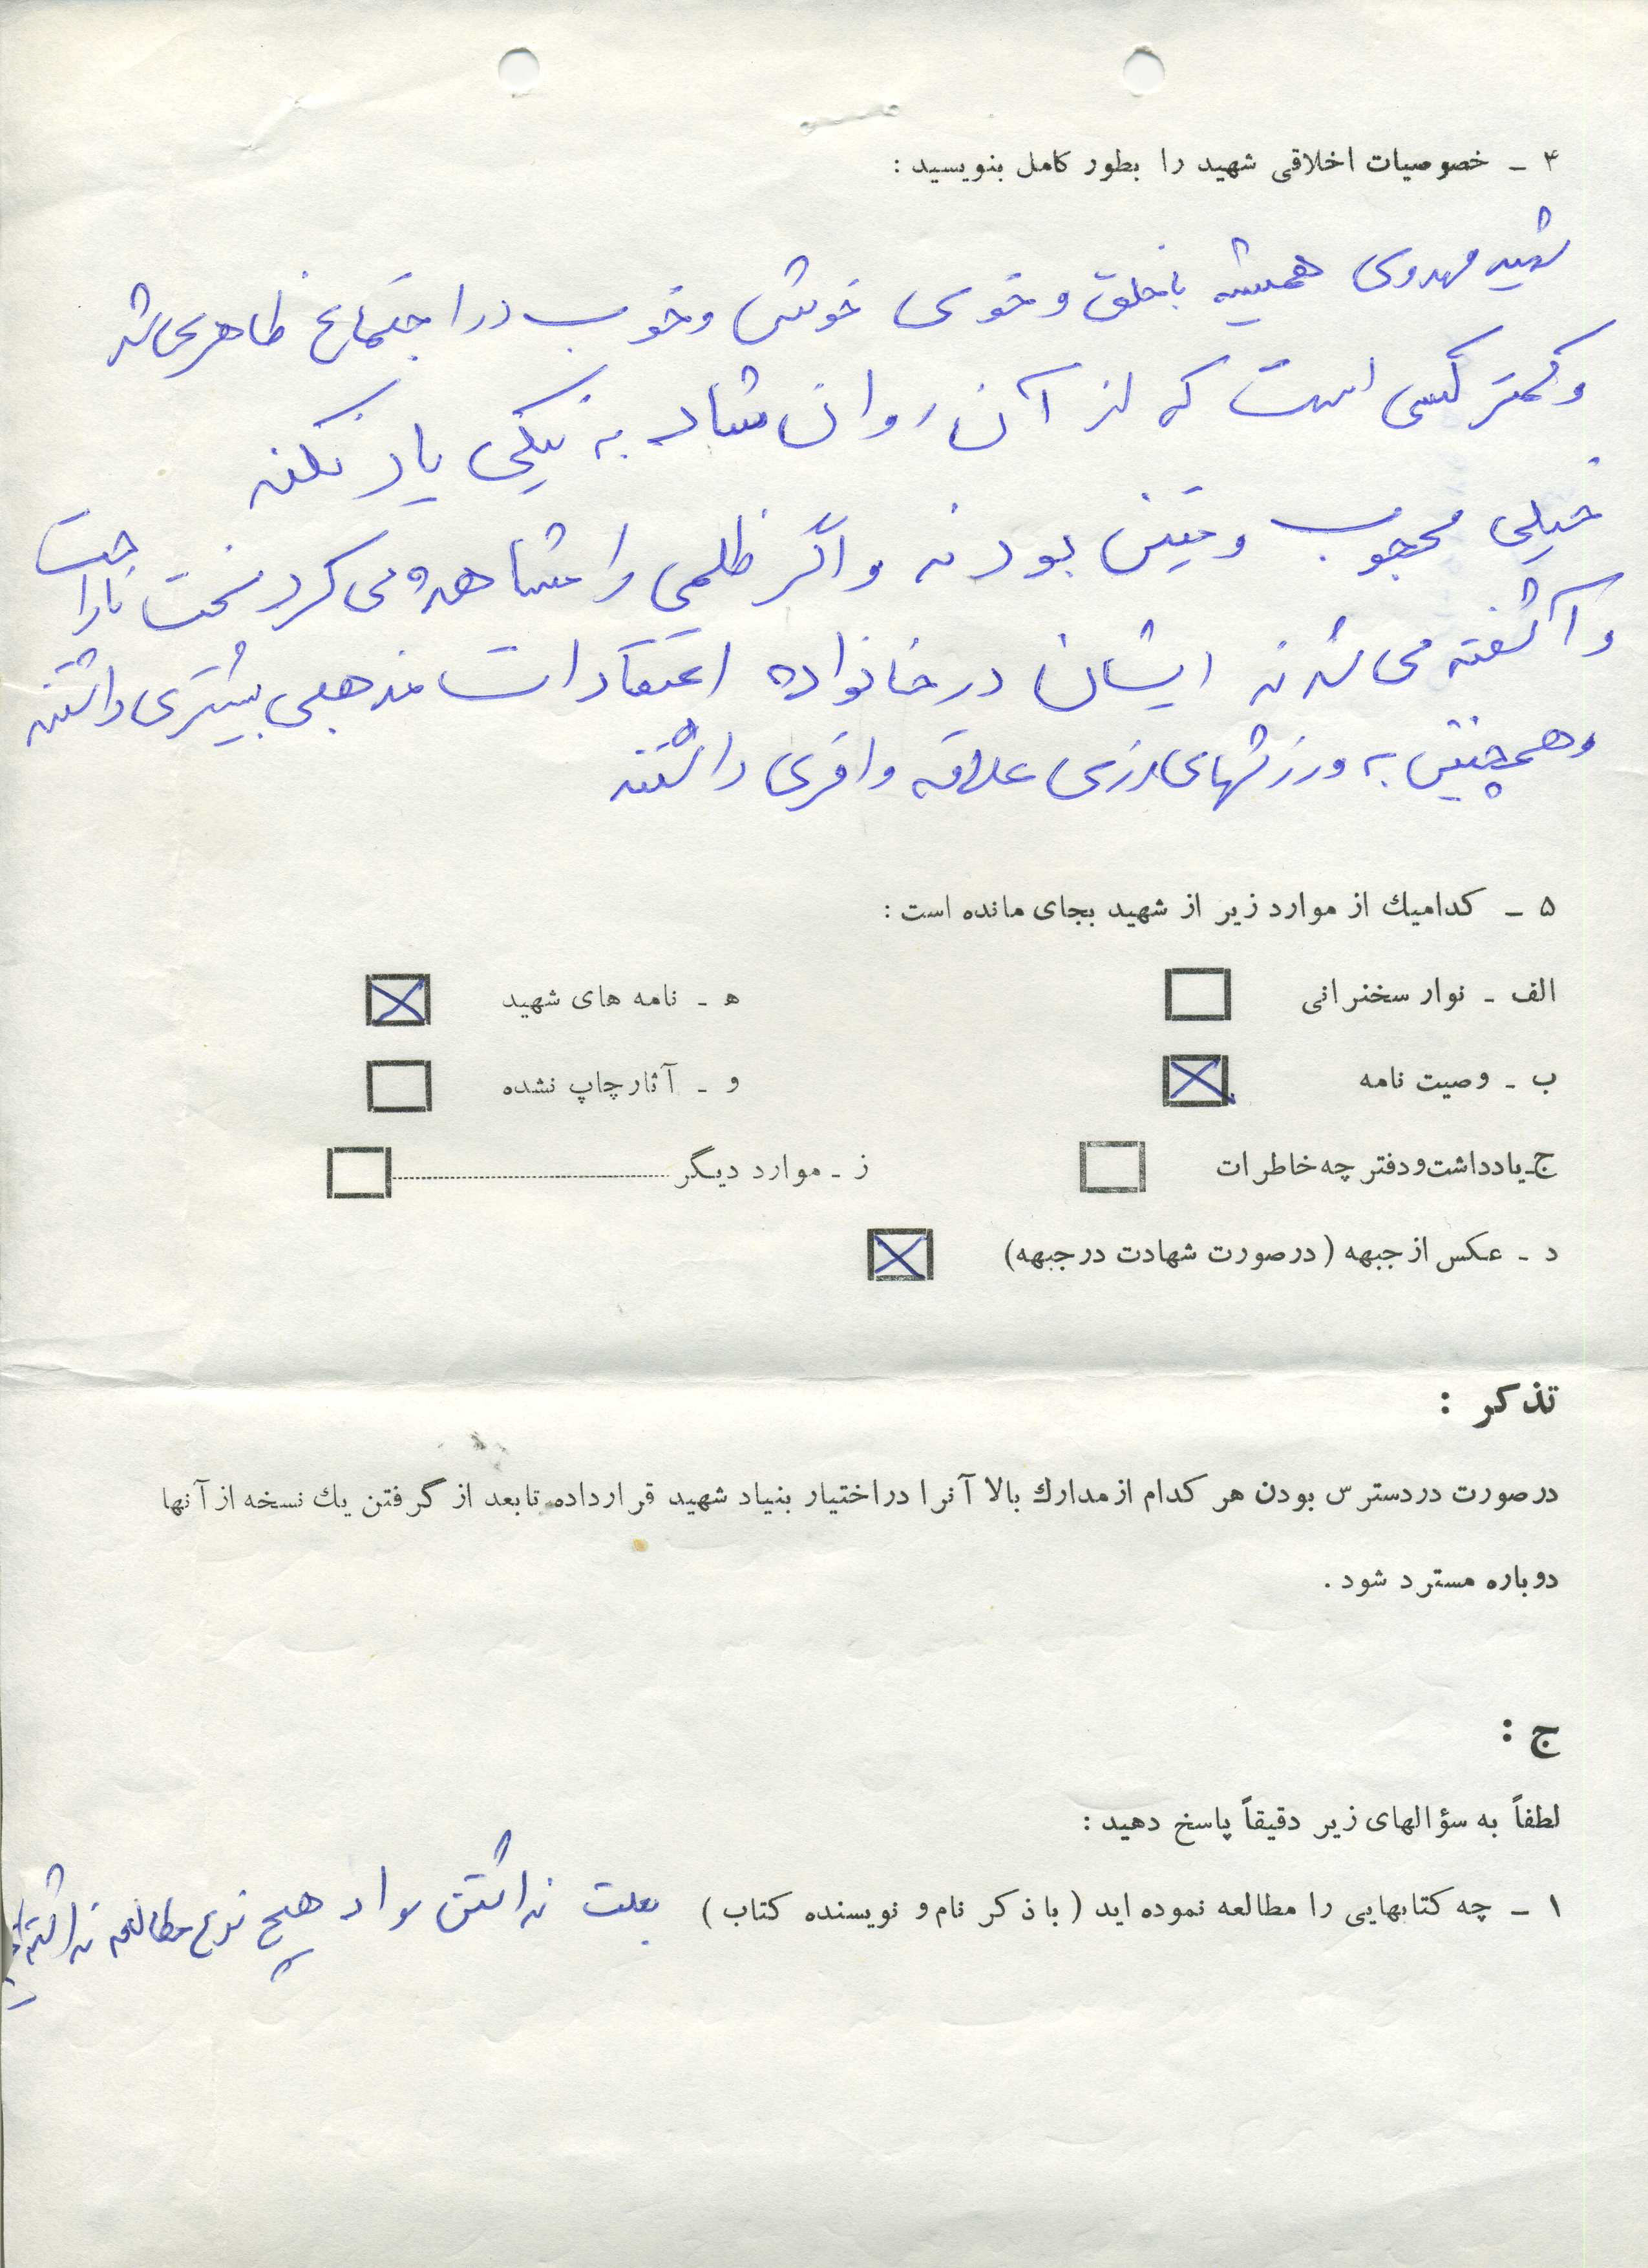 ۴ - خصوصیات اخلاقی شهید را بطور کامل بنویسید :
شهید مهدوی همیشه با خلق و خوی خوش و خوب در اجتماع ظاهر می شد
و کمتر کسی است که از آن روان شاد به نیکی یاد نکند
خیلی محجوب و متین بودند و اگر ظلمی را مشاهده می کرد سخت ناراحت
و آشفته می شدند ایشان در خانواده اعتقادات مذهبی بیشتری داشتند
و همچنین به ورزشهای رزمی علاقه وافری داشتند
۵ - کدامیک از موارد زیر از شهید بجای مانده است :
الف - نوار سخنرانی ه - نامه های شهید
ب - وصیت نامه و - آثار چاپ نشده
ج - یادداشت و دفترچه خاطرات ز - موارد دیگر
د - عکس از جبهه (در صورت شهادت در جبهه)
تذکر :
در صورت در دسترس بودن هر کدام از مدارك بالا آنرا در اختیار بنیاد شهید قرار داده تا بعد از گرفتن یك نسخه از آنها
دوباره مسترد شود .
ج :
لطفاً به سؤالهای زیر دقیقاً پاسخ دهید :
۱ - چه کتابهایی را مطالعه نموده اید ( با ذکر نام و نویسنده کتاب ) بعلت نداشتن سواد هیچ نوع مطالعه نداشته